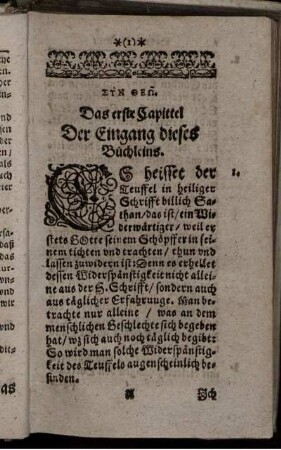 *(1)*
ΣΥΝ ΘΕΩ.
Das erste Capittel
Der Eingang dieses
Büchleins.
ES heisset der 1.
Teuffel in heiliger
Schrifft billich Sa-
than/das ist/ein Wi-
derwärtiger/ weil er
stets GOtte seinem Schöpffer in sei-
nem tichten und trachten/ thun und
lassen zuwidern ist: Denn es erhellet
dessen Widerspänstigkeit nicht allei-
ne aus der H. Schrifft/ sondern auch
aus täglicher Erfahruuge. Man be-
trachte nur alleine / was an dem
menschlichen Geschlechte sich begeben
hat/ wz sich auch noch täglich begibt:
So wird man solche Widerspänstig-
keit des Teuffels augenscheinlich be-
finden.
A Ich